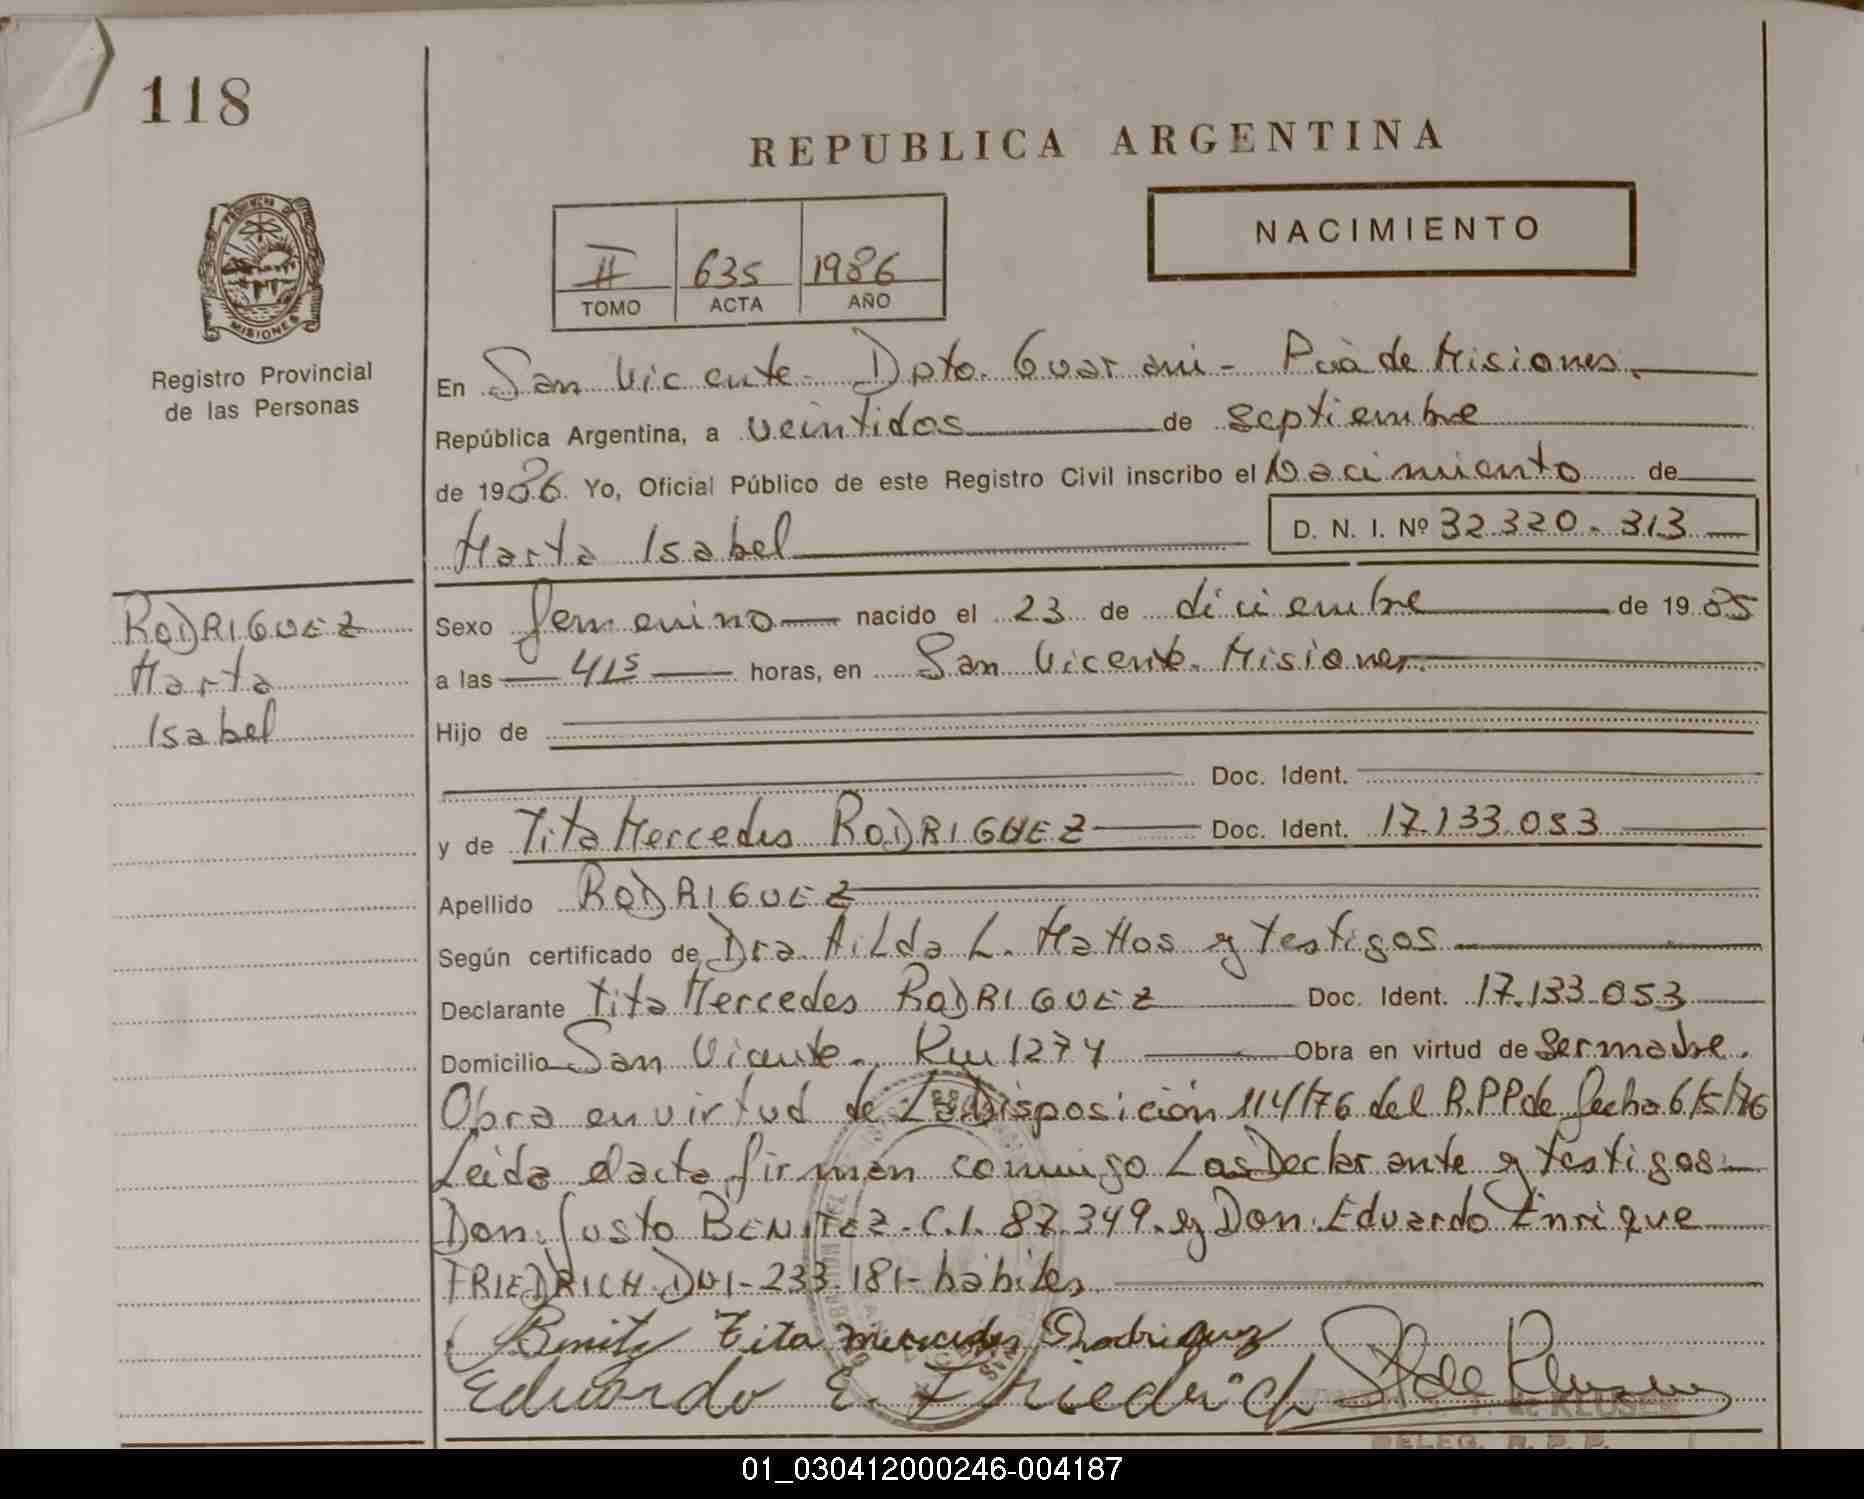 118
REPUBLICA ARGENTINA
NACIMIENTO
II 635 1986
TOMO ACTA AÑO
PROVINCIA DE
MISIONES
Registro Provincial
de las Personas
En San Vicente - Dpto. Guarani - Pcia de Misiones.
República Argentina, a veintidos de septiembre
de 1986. Yo, Oficial Público de este Registro Civil inscribo el Nacimiento de
Marta Isabel
D. N. I. Nº 32.320.313
RODRIGUEZ
Marta
Isabel
Sexo femenino nacido el 23 de diciembre de 1985
a las 4 15 horas, en San Vicente. Misiones.
Hijo de
Doc. Ident.
y de Tita Mercedes RODRIGUEZ Doc. Ident. 17.133.053
Apellido RODRIGUEZ
Según certificado de Dra. Ailda L. Mattos y testigos
Declarante Tita Mercedes RODRIGUEZ Doc. Ident. 17.133.053
Domicilio San Vicente. Km 1274 Obra en virtud de ser madre.
Obra en virtud de La Disposición 114/76 del R.P.P de fecha 6/5/76
Leida el acta firman conmigo Las Declarante y testigos
Don Justo BENITEZ - C.I. 87.349. y Don Eduardo Enrique
FRIEDRICH DNI - 233.181 - habiles
J Benitez Tita Mercedes Rodriguez
Eduardo E. Friedrich
de KLUSEN
DELEG. R. P. P.
01_030412000246-004187